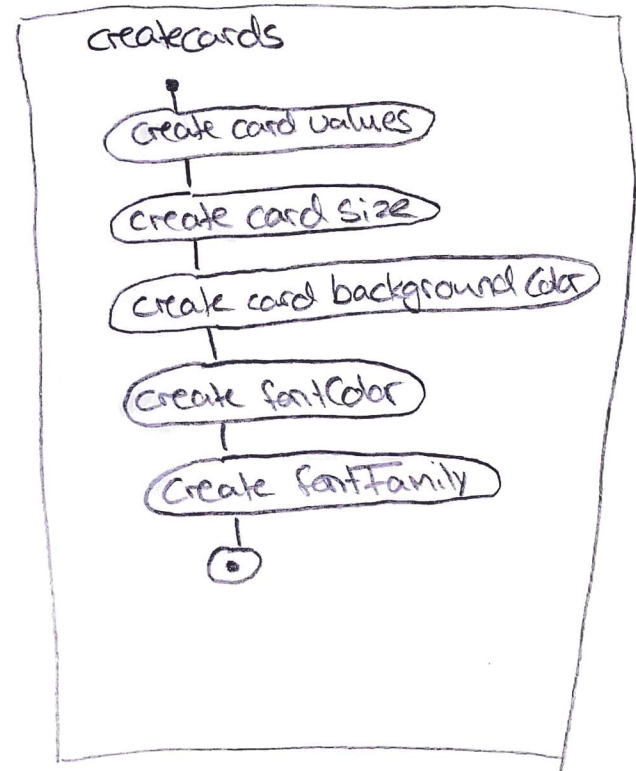 createcards
create card values
create card size
create card background Color
create fontColor
create fontFamily